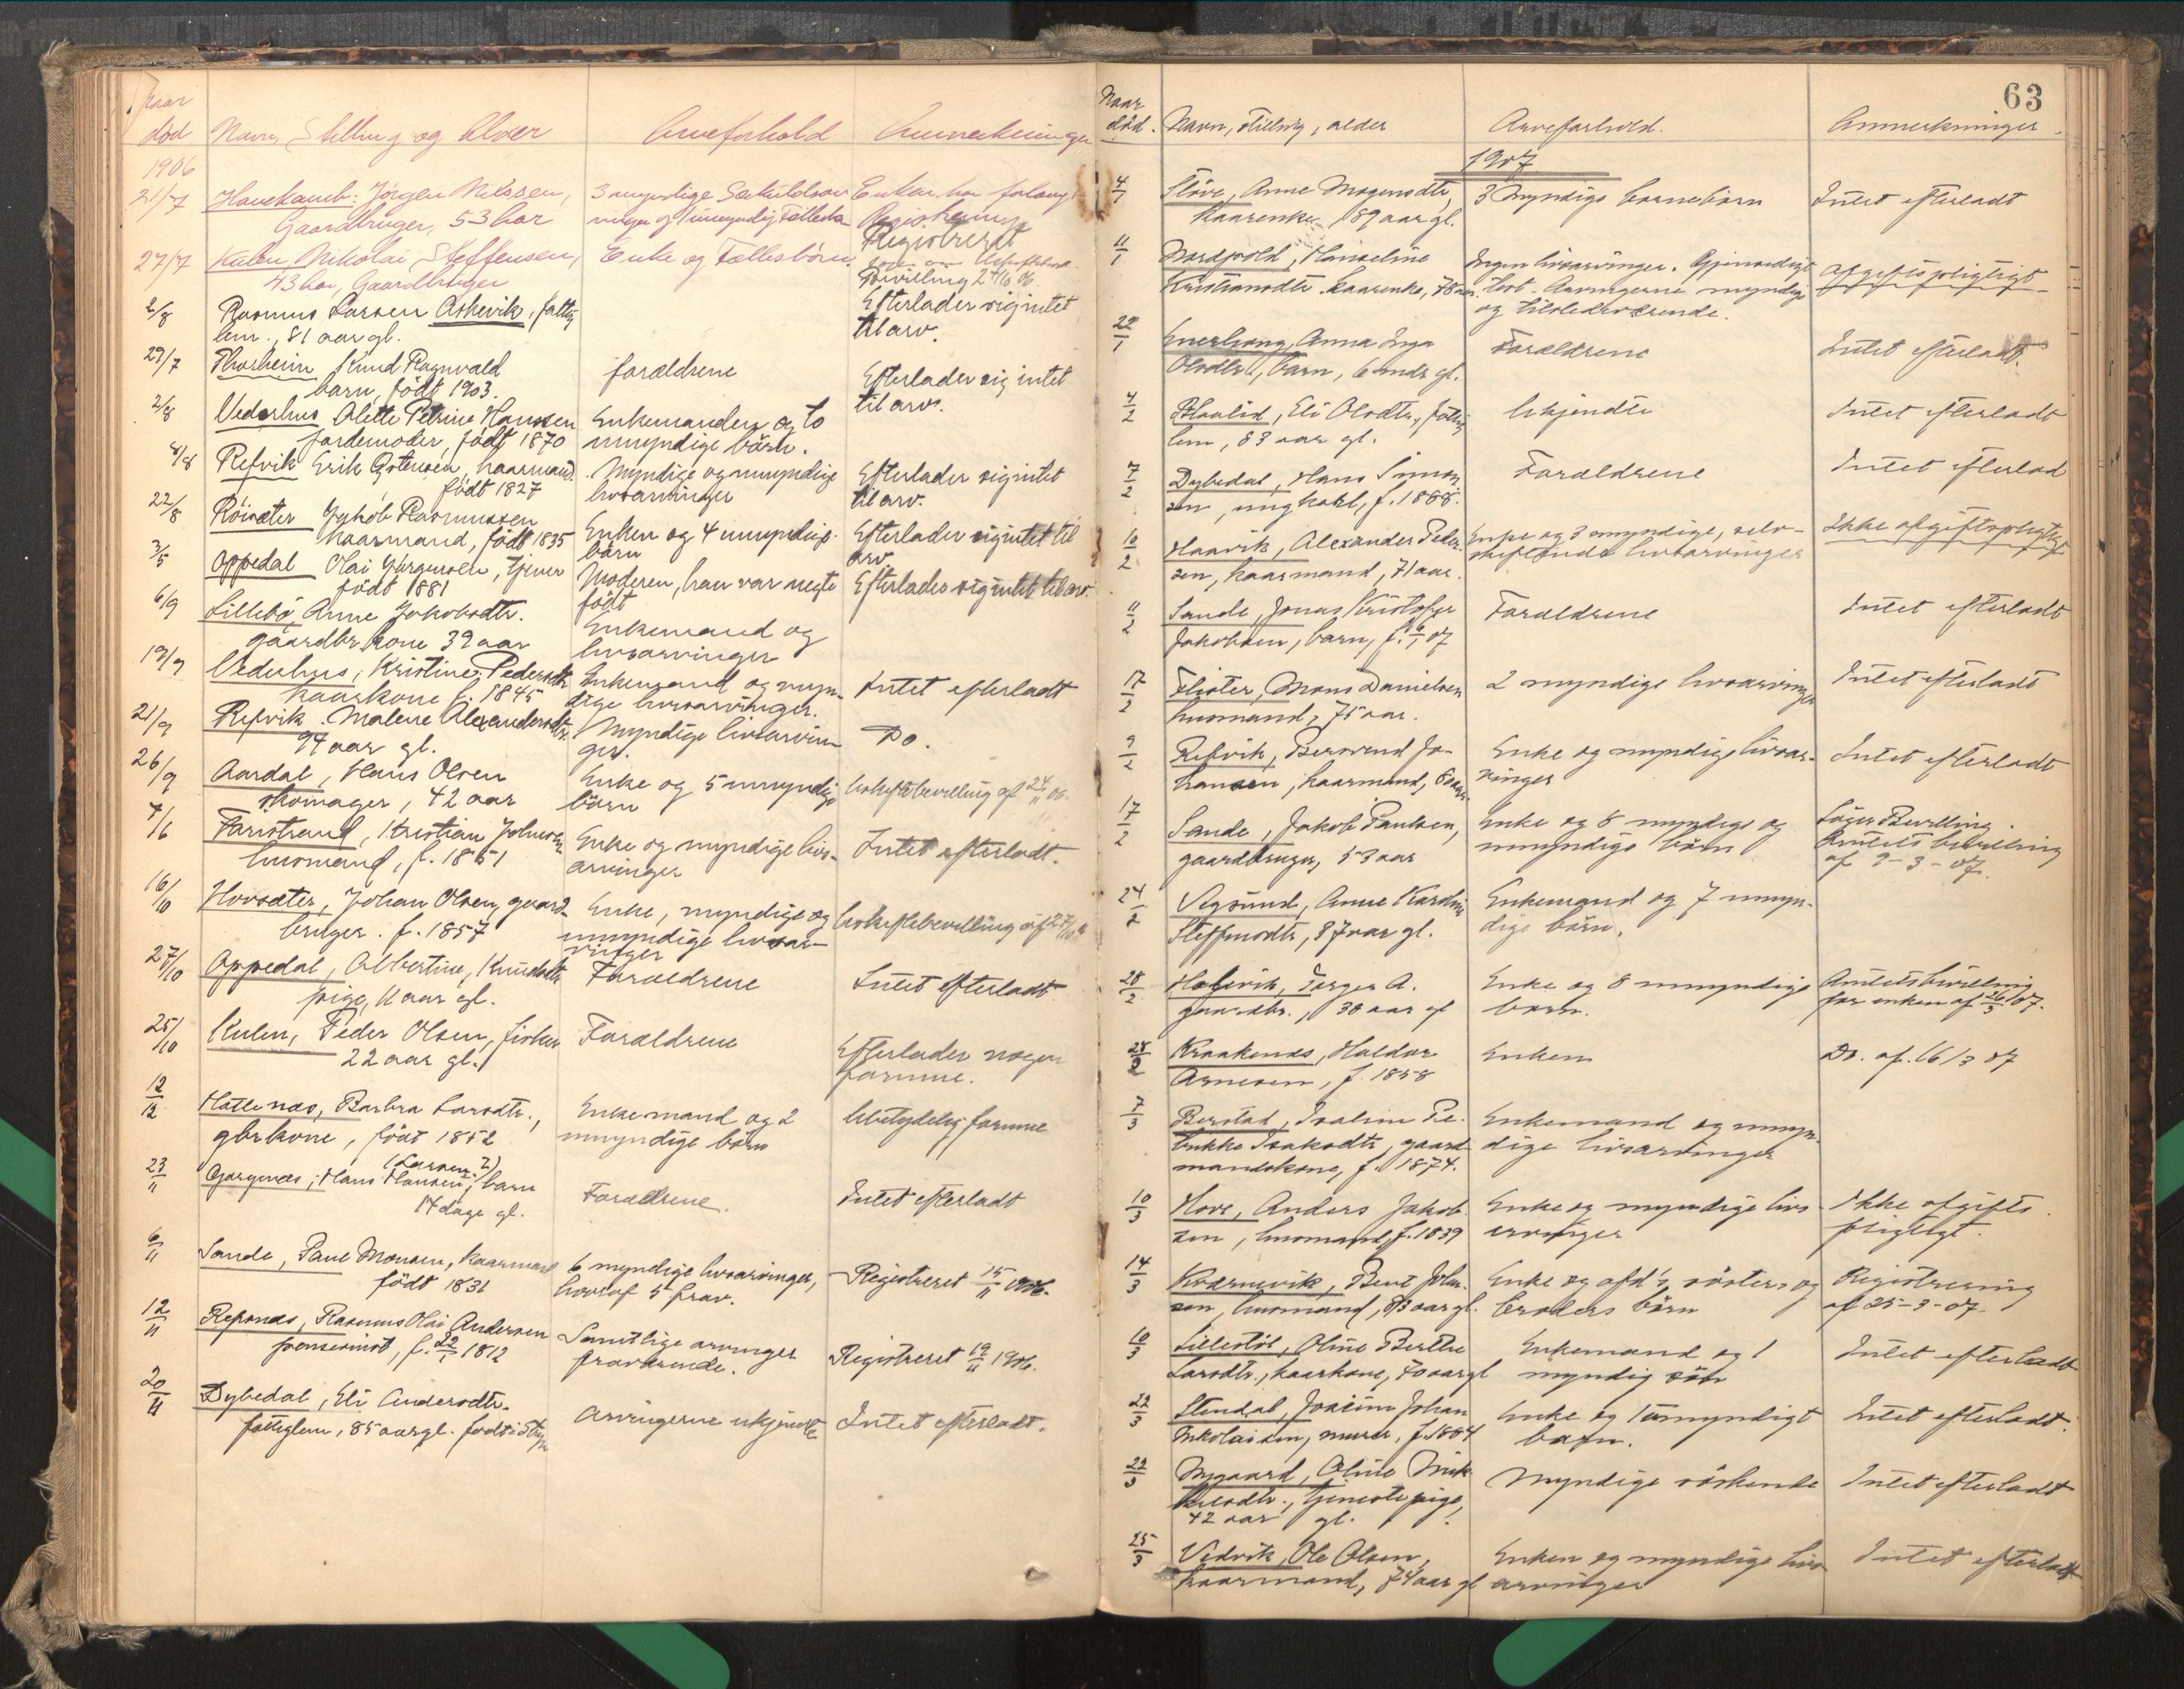 Naar
död
Navn, Stilling og Alder
Arveforhold
Anmerkninger
1906
21/7
Jørgen Nilssen,
Gaardbruger, 53 aar
3 myndige
og umyndig
Enken har forlangt
Registrering
Registreret
27/7
Kulen Nikolai Steffensen,
43 aar, Gaardbruger
Enke og Fællesbörn
Bevilling 24/10 06.
2/8
Rasmus Larsen Askevik, fattig
lem, 81 aar gl.
Efterlader sig intet
til arv.
29/7
Thorheim Knud Ragnvald
barn, født 1903.
forældrene
Efterlader sig intet
til arv.
2/8
Vederhus Olette Petrine Hansen
jordemoder, født 1870
Enkemanden og to
umyndige börn.
8/8
Refvik Erik Gstensen, kaarmand.
født 1827
Myndige og umyndige
livsarvinger
Efterlader sig intet
til arv.
22/8
Röisæter Jakob Rasmussen
kaarmand, født 1835
Enken og 4 umyndige
börn
Efterlader sig intet til
arv.
3/5
Oppedal Olai Jörgensen, tjener
født 1881
Moderen, han var uegte
født
Efterlader sig intet til arv.
6/9
Lillebö, Anne Jakobsdtr.
gaardbr. kone 39 aar
Enkemand og
livsarvinger
19/9
Vederhus, Kristine Pedersdtr
kaarkone f. 1845
Enkemand og myn-
dige livsarvinger.
Intet efterladt
21/9
Refvik Malene Alexandersdtr.
94 aar gl.
Myndige livsarvin-
ger.
Do.
26/9
Aardal, Hans Olsen
skomager, 42 aar
Enke og 5 umyndige
börn
Uskiftebevilling af 24/11 06.
7/6
Færistrand, Kristian Johnsen
husmand, f. 1851
Enke og myndige livs-
arvinger
Intet efterladt.
16/10
Hovsæter, Johan Olsen, gaard-
bruger. f. 1857
Enke, myndige og
umyndige livsar-
vinger
Uskiftebevilling af 27/10
27/10
Oppedal, Albertine, Knudsdtr
pige, 11 aar gl.
Forældrene
Intet efterladt
25/10
Kulen, Peder Olsen, fisker
22 aar gl.
Forældrene
Efterlader nogen
formue.
12/12
Hatlenæs, Barbra Larsdtr.,
gbrkone, født 1852
Enkemand og 2
umyndige börn
Ubetydelig formue
23/11
(Larsen?)
Gorgenæs, Hans Hansen, barn
14 dage gl.
Forældrene.
Intet efterladt
6/11
Sande, Paul Monsen, kaarmand
født 1831
6 myndige livsarvinger,
hvoraf 5 frav.
Registreret 15/11 1906.
12/11
Refsnæs, Rasmus Olai Andersen
pensionist, f. 22/1 1812
Samtlige arvinger
fraværende.
Registreret 19/11 1906.
20/11
Dybedal, Eli Andersdtr.
fatteglem, 85 aar gl. født i Stryn
Arvingerne ukjendte
Intet efterladt.
63
Naar
död.
Navn, stilling, alder
Arveforhold.
Anmerkninger.
1907
4/1
Stöve, Anne Mogensdtr,
kaarenke, 89 aar gl.
3 Myndige barnebörn
Intet efterladt
11/1
Nordpold, Hanseline
Kristiansdtr. kaarenke, 78 aar.
Ingen livsarvinger. Gjensidigt
test. Arvingerne myndige
og tilstedeværende.
Afgiftspligtigt
22/1
Anna Inga
Olsdtr., barn, 6 mdr gl.
Forældrene
Intet efterladt.
4/2
Haalid, Eli Olsdtr., fattig
lem, 83 aar gl.
Ukjendte
Intet efterladt
7/2
Dybedal, Hans Simon
sen, ungkarl, f. 1888.
Forældrene
Intet efterlad
10/2
Haavik, Alexander Peder-
sen, kaarmand, 71 aar.
Enke og 3 myndige, selv-
skiftende livsarvinger
Ikke afgiftspligtigt
11/2
Sande, Jonas Kristofer
Jakobsen, barn, f. 6/1 07
Forældrene
Intet efterladt
17/2
Flister, Mons Danielsen
husmand, 75 aar.
2 myndige livsarvinger
Intet efterladt
9/2
Refvik, Berovend Jo-
hansen, kaarmand, 80 aar.
Enke og myndige livsar-
vinger
Intet efterladt
17/2
Sande, Jakob Paulsen,
gaardbruger, 53 aar
Enke og 8 myndige og
umyndige börn
Söger Bevilling.
Amtets bevilling
af 9-3-07.
24/2
Vegsund, Anne Karoline
Steffensdtr, 37 aar gl.
Enkemand og 7 umyn-
dige börn.
28/2
Holevik, Torger A.
gaardbr., 38 aar gl
Enke og 8 umyndige
barn.
Amtets bevilling
for enken af 26/3 07.
28/2
Kraakenæs, Haldor
Arnesen, f. 1858
Enken
Do. af. 16/3 07
7/3
Berstad, Ivaline Re-
bekka Isaksdtr, gaard-
mandskone, f. 1874.
Enkemand og umyn-
dige livsarvinger
10/3
Hove, Anders Jakob
sen, husmand, f. 1839
Enke og myndige livs
arvinger
Ikke afgifts
pligtigt.
14/3
Kvernevik, Bent John-
sen, husmand, 83 aar gl.
Enke og afd's sösters og
broders börn
Registrering
af 25-3-07.
10/3
Lillestöl, Oline Berthe
Larsdtr., kaarkone, 70 aar gl
Enkemand og 1
myndig sön
Intet efterladt
22/3
Stendal, Joakim Johan
Nikolaisen, murer, f. 1864
Enke og 1 umyndigt
barn.
Intet efterladt.
22/3
Nygaard, Oline Mik-
kelsdtr., tjenestepige,
42 aar gl.
Myndige söskende
Intet efterladt
25/3
Vedvik, Ole Olsen,
kaarmand, 74 aar gl
Enken og myndige livs
arvinger
Intet efterladt